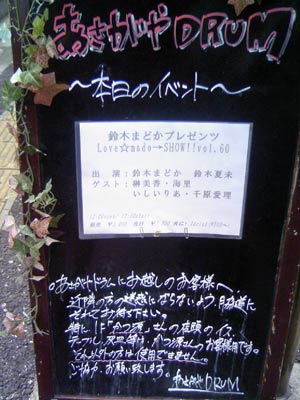 あさがやDRUM
〜本日のイベント〜
鈴木まどかプレゼンツ
Love☆mado→SHOW!!vol.60
出 演：鈴木まどか 鈴木夏未
ゲスト：榊美香・海里
いしいりあ・千原愛理
あさがやドラムにお越しのお客様へ
近隣の方の迷惑にならないよう、
お待ち下さい。
特に1F「かつ源」さんの店頭のイス、
テーブル、灰皿等は、かつ源さんのお客様用です。
それ以外の方は使用できません。
お願い致します。
あさがやDRUM